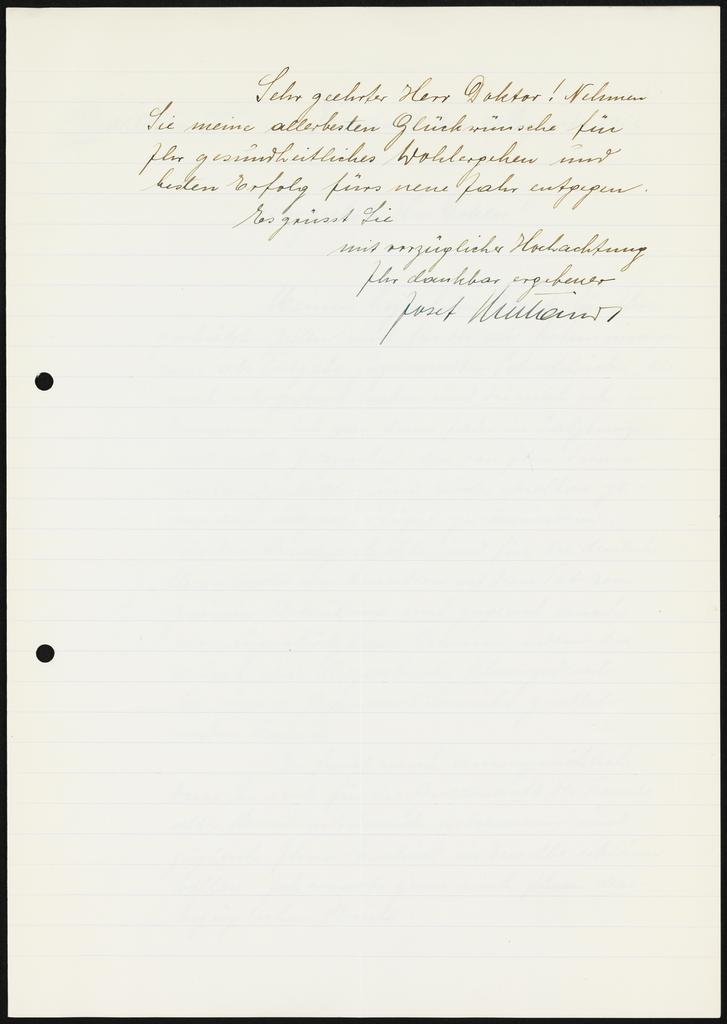 Sehr geehrter Herr Doktor! Nehmen
Sie meine allerbesten Glückwünsche für
Ihr gesundheitliches Wohlergehen und
besten Erfolg fürs neue Jahr entgegen.
Es grüsst Sie
mit vorzüglicher Hochachtung
Ihr dankbar ergebener
Josef